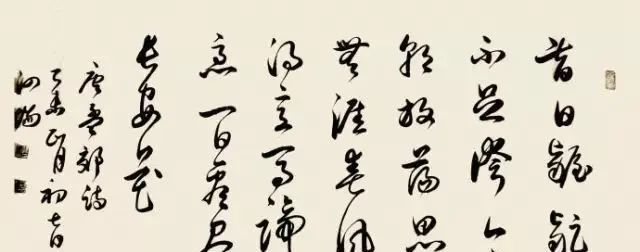 昔日齷齪
不足誇今
朝放蕩思
無涯春風
得意馬蹄
疾一日看盡
長安花
唐孟郊詩
乙未正月初七日